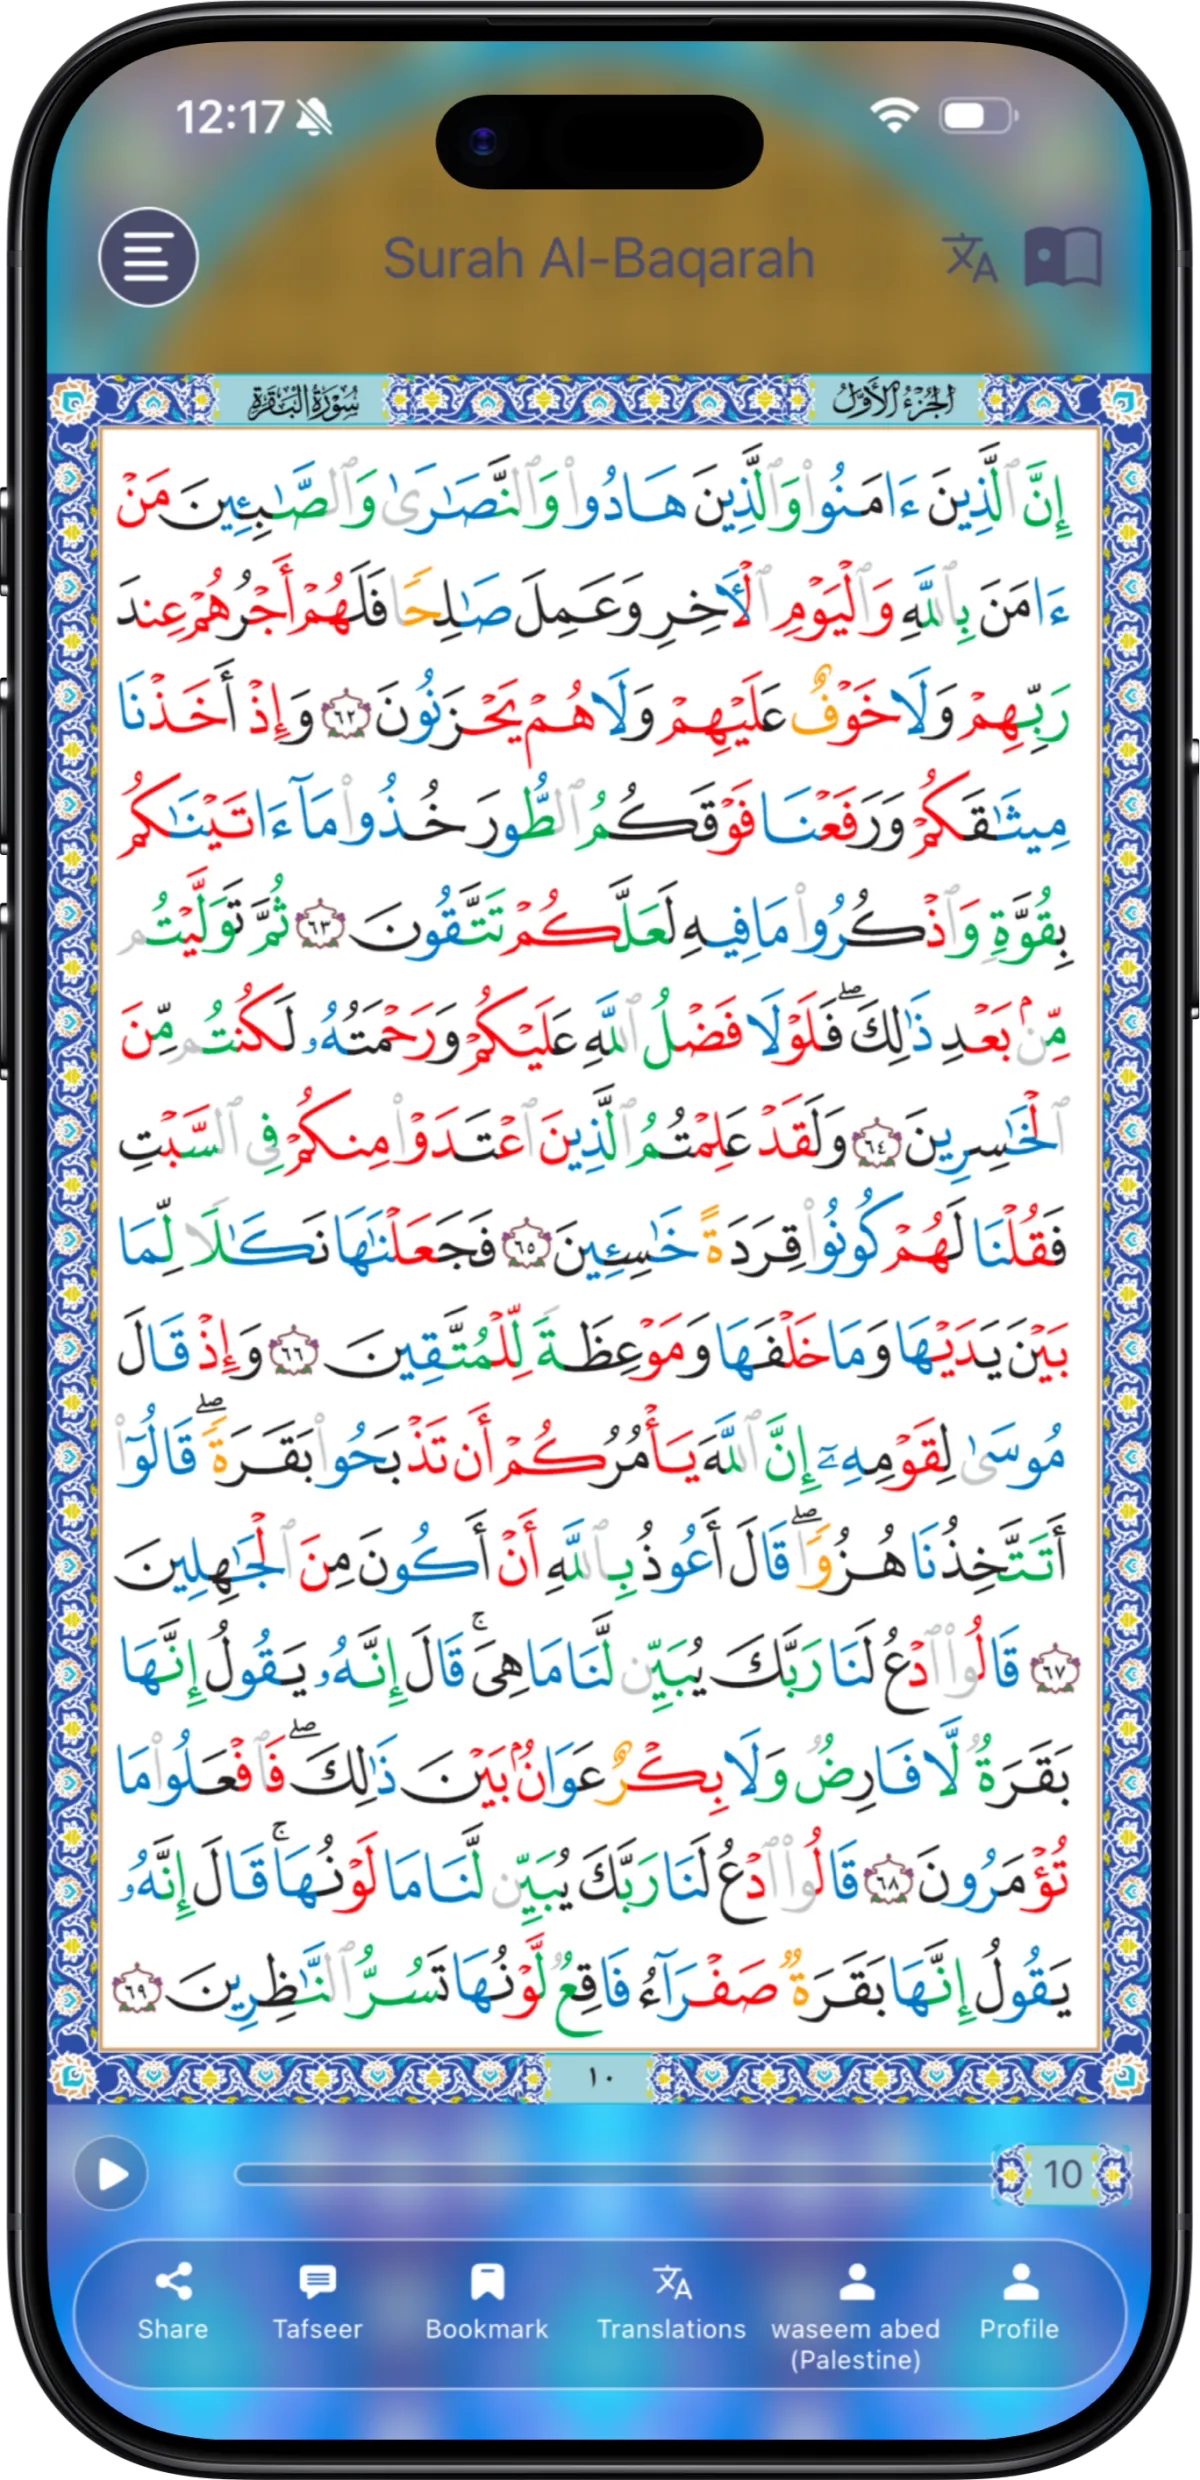 12:17
Surah Al-Baqarah
سُورَةُ البَقَرَةِ الجُزْءُ الأَوَّلُ
إِنَّ ٱلَّذِينَ ءَامَنُوا۟ وَٱلَّذِينَ هَادُوا۟ وَٱلنَّصَـٰرَىٰ وَٱلصَّـٰبِـِٔينَ مَنْ
ءَامَنَ بِٱللَّهِ وَٱلْيَوْمِ ٱلْـَٔاخِرِ وَعَمِلَ صَـٰلِحًا فَلَهُمْ أَجْرُهُمْ عِندَ
رَبِّهِمْ وَلَا خَوْفٌ عَلَيْهِمْ وَلَا هُمْ يَحْزَنُونَ ٦٢ وَإِذْ أَخَذْنَا
مِيثَـٰقَكُمْ وَرَفَعْنَا فَوْقَكُمُ ٱلطُّورَ خُذُوا۟ مَآ ءَاتَيْنَـٰكُم
بِقُوَّةٍ وَٱذْكُرُوا۟ مَا فِيهِ لَعَلَّكُمْ تَتَّقُونَ ٦٣ ثُمَّ تَوَلَّيْتُم
مِّنۢ بَعْدِ ذَٰلِكَ ۖ فَلَوْلَا فَضْلُ ٱللَّهِ عَلَيْكُمْ وَرَحْمَتُهُۥ لَكُنتُم مِّنَ
ٱلْخَـٰسِرِينَ ٦٤ وَلَقَدْ عَلِمْتُمُ ٱلَّذِينَ ٱعْتَدَوْا۟ مِنكُمْ فِى ٱلسَّبْتِ
فَقُلْنَا لَهُمْ كُونُوا۟ قِرَدَةً خَـٰسِـِٔينَ ٦٥ فَجَعَلْنَـٰهَا نَكَـٰلًا لِّمَا
بَيْنَ يَدَيْهَا وَمَا خَلْفَهَا وَمَوْعِظَةً لِّلْمُتَّقِينَ ٦٦ وَإِذْ قَالَ
مُوسَىٰ لِقَوْمِهِۦٓ إِنَّ ٱللَّهَ يَأْمُرُكُمْ أَن تَذْبَحُوا۟ بَقَرَةً ۖ قَالُوٓا۟
أَتَتَّخِذُنَا هُزُوًا ۖ قَالَ أَعُوذُ بِٱللَّهِ أَنْ أَكُونَ مِنَ ٱلْجَـٰهِلِينَ
٦٧ قَالُوا۟ ٱدْعُ لَنَا رَبَّكَ يُبَيِّن لَّنَا مَا هِىَ ۚ قَالَ إِنَّهُۥ يَقُولُ إِنَّهَا
بَقَرَةٌ لَّا فَارِضٌ وَلَا بِكْرٌ عَوَانٌۢ بَيْنَ ذَٰلِكَ ۖ فَٱفْعَلُوا۟ مَا
تُؤْمَرُونَ ٦٨ قَالُوا۟ ٱدْعُ لَنَا رَبَّكَ يُبَيِّن لَّنَا مَا لَوْنُهَا ۚ قَالَ إِنَّهُۥ
يَقُولُ إِنَّهَا بَقَرَةٌ صَفْرَآءُ فَاقِعٌ لَّوْنُهَا تَسُرُّ ٱلنَّـٰظِرِينَ ٦٩
١٠
10
Share Tafseer Bookmark Translations waseem abed Profile
(Palestine)